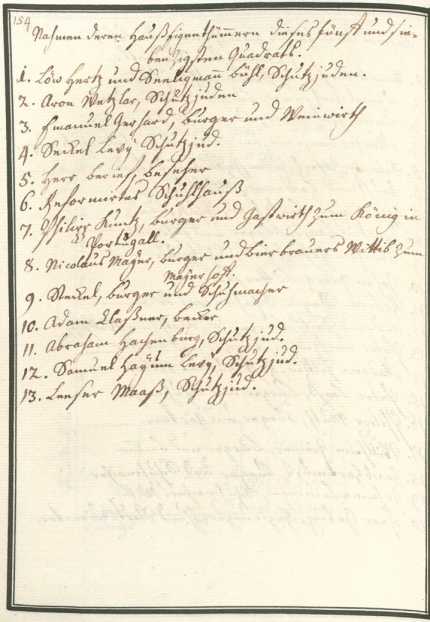 154
Nahmen deren Haußeigenthümmern dieses fünf und sie-
benzigsten Quadrats.
1. Löw Hertz und Seeligmann bühl, Schutzjuden.
2. Aron Wetzlar, Schutzjuden
3. Emanuel Gerhard, burger und Weinwirth
4. Seckel Levy Schutzjud.
5. Herr beseher
6. Reformirtes Schuhlhauß
7. Philipp Kuntz, burger und Gastwirth zum König in
Portugall.
8. Nicolaus Mayer, burger und bierbrauers Wittib zum
Mayerhoff.
9. Steckel, burger und Schuhmacher
10. Adam Claßner, becker
11. Abraham Hachenburg, Schutzjud.
12. Samuel Hayum Levy, Schutzjud.
13. Leeser Maaß, Schutzjud.